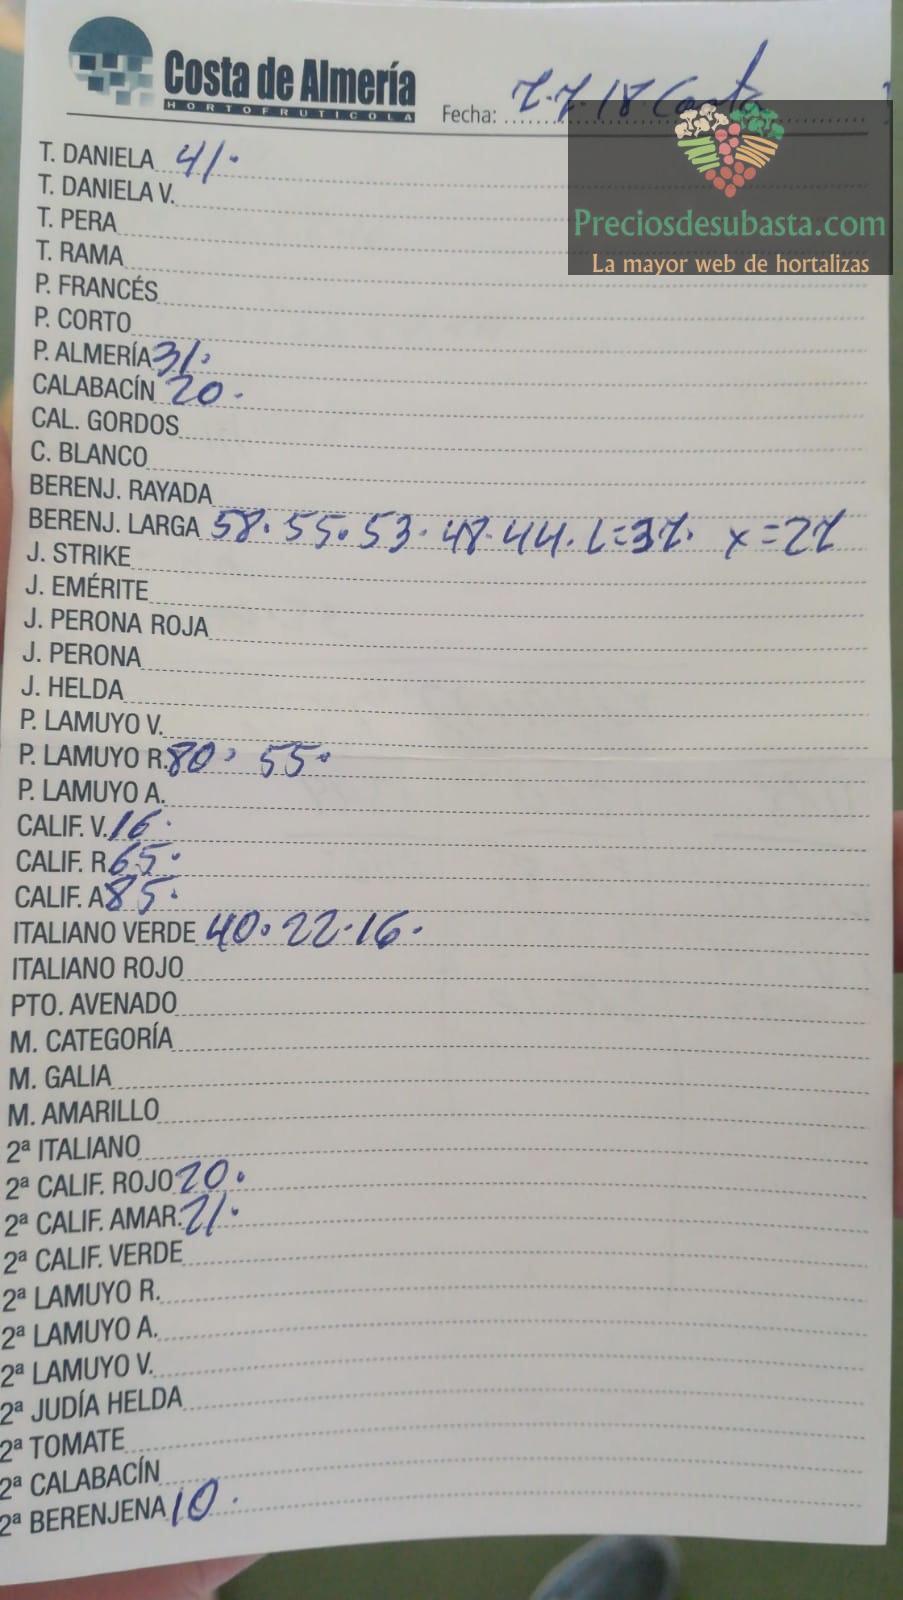 Costa de Almería
HORTOFRUTICOLA
Fecha: 7.7.18 Costa
Preciosdesubasta.com
La mayor web de hortalizas
T. DANIELA 41.
T. DANIELA V.
T. PERA
T. RAMA
P. FRANCÉS
P. CORTO
P. ALMERÍA 31.
CALABACÍN 20.
CAL. GORDOS
C. BLANCO
BERENJ. RAYADA
BERENJ. LARGA 58. 55. 53. 48. 44. L=37. x=27
J. STRIKE
J. EMÉRITE
J. PERONA ROJA
J. PERONA
J. HELDA
P. LAMUYO V.
P. LAMUYO R. 80. 55.
P. LAMUYO A.
CALIF. V. 16.
CALIF. R. 65.
CALIF. A 85.
ITALIANO VERDE 40. 22. 16.
ITALIANO ROJO
PTO. AVENADO
M. CATEGORÍA
M. GALIA
M. AMARILLO
2ª ITALIANO
2ª CALIF. ROJO 20.
2ª CALIF. AMAR. 21.
2ª CALIF. VERDE
2ª LAMUYO R.
2ª LAMUYO A.
2ª LAMUYO V.
2ª JUDÍA HELDA
2ª TOMATE
2ª CALABACÍN
2ª BERENJENA 10.